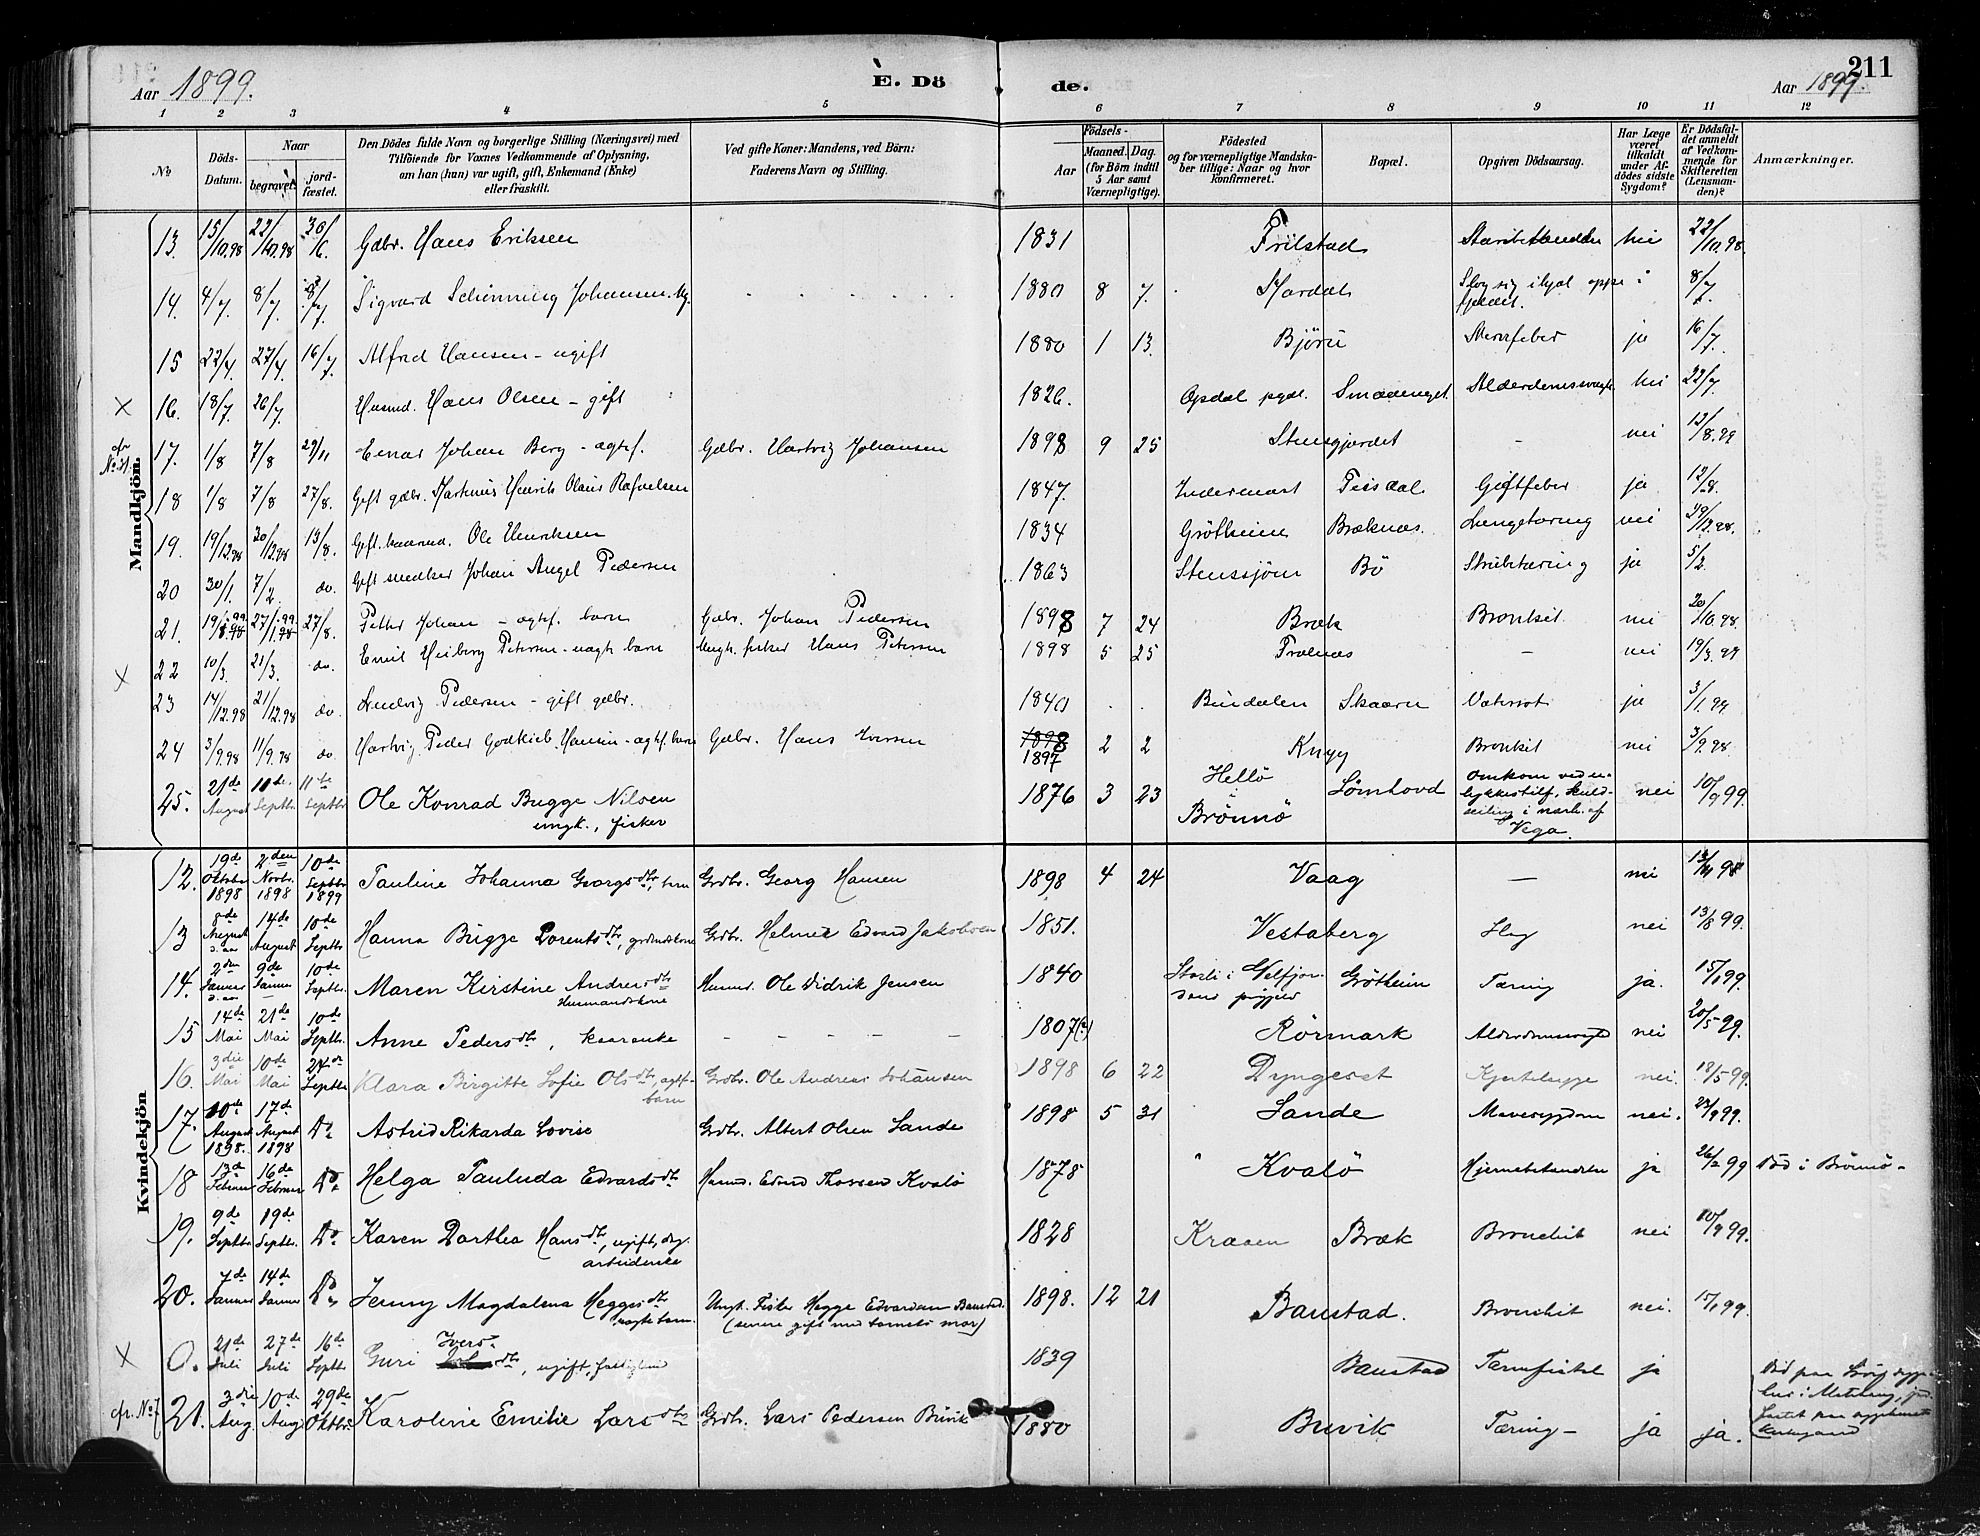 211
Aar 1899. E. Dö de. Aar 1899.
1 2 3 4 5 6 7 8 9 10 11 12
No
Döds-Datum.
Naar begravet. jord-fæstet.
Den Dödes fulde Navn og borgerlige Stilling (Næringsvei) med
Tilföiende for Voxnes Vedkommende af Oplysning,
om han (hun) var ugift, gift, Enkemand (Enke)
eller fraskilt.
Ved gifte Koner: Mandens, ved Börn:
Faderens Navn og Stilling.
Födsels-
Aar Maaned. Dag.
(for Börn indtil 5 Aar samt Værnepligtige).
Födested
og for værnepligtige Mandska-
ber tillige: Naar og hvor
konfirmeret.
Bopæl.
Opgiven Dödsaarsag.
Har Læge været tilkaldt under Af-dödes sidste Sygdom?
Er Dödsfal-det anmeldt af Vedkom-mende for Skifteretten (Lensman-den)?
Anmærkninger.
Mandkjön.
13. 15/10.98 22/10.98 30/6. Gdbr. Hans Eriksen 1831 Frilstad nei 22/10.98.
14. 4/7. 8/7. Sigvard Schönning Johansen. 1880 8 7. Slog sig ihjel oppe i fjeldet. 8/7.
15 22/4. 27/4. 16/7. Alfred Hansen - ugift 1880 1 13. Björu ja 16/7.
16. 18/7. 26/7. Husmd. Hans Olsen - gift 1826. Opdal pgd. nei 22/7.
cfr No 31. 17. 1/8 7/8 29/11 Einar Johan Berg - ægtef. Gdbr. Hartvig Johansen 1898 9 25 Stensgjerdet - nei 12/8.99
18 1/8 7/8. 27/8. Gift gdbr. Martinus Henrik Olaus Rafaelsen 1847. Teisdal Giftfeber ja 12/8.
19. 19/12.98 30/12.98 13/8. Gift. Ole Henriksen 1834 Grötheim Bræknæs. Lungetæring nei 29/12.98.
20 30/1. 7/2. do. Gift snedker Johan Angel Pedersen 1863 Stenssjöen Bö Strubetæring ja 5/2.
21. 27/8. Petter Johan - ægtef. barn Gdbr. Johan Pedersen 1898 7 24 Bræk Bronkit nei 20/10.98.
22 10/3. 21/3. do. Emil Heiberg Petersen - uægte barn Ungk. fisker Hans Petersen 1898 5 25 Frælnæs - nei 19/3.99
23 14/12.98 21/12.98 do. Ludvig Pedersen - gift gdbr. 1840 Bindalen Skaaren Vatersot ja 3/1.99.
24 3/9.98 11/9.98 do Hartvig Peder Godtlieb Hansen - ægtef. barn Gdbr. Hans Iversen 1898 1897 2 2 Knyg Bronkit nei 3/9.98.
25. 21de August 10de Septbr. 11te Septbr Ole Konrad Bugge Nilsen
ungk., fisker 1876 3 23 Hellö i Brönnö Sömhovd Omkom ved u-lykkestilf, kuld-seiling i nærh. af Vega. nei 10/9 99.
Kvindekjön
12. 19de Oktober 1898 2den Novbr. 1898 10de Septbr 1899 Pauline Johanna Georgsdtr, barn Grdbr. Georg Hansen 1898 4 24 Vaag — nei
13 8de August d. aa 14de August 10de Septbr. Hanna Bugge Lorentsdtr, grdmdskone Grdbr. Helmer Edvard Jakobsen 1851. Vestaberg Slag nei 13/8 99.
14. 2den Januar d. aa 9de Januar 10de Septbr. Maren Kirstine Andersdtr
Husmandskone Husmd. Ole Didrik Jensen 1840 Storli i Velfjor-dens prgjeld Grötheim Tæring ja. 15/1 99.
15 14de Mai 21de Mai 10de Septbr. Anne Pedersdtr, kaarenke - - - - 1807(?) Rörmark nei 20/5 99.
16. 3die Mai 10de Mai 24de Septbr Klara Birgitte Sofie Olsdtr, ægtef-
barn Grdbr. Ole Andreas Johansen 1898 6 22 Dyngeset Kjertelsyge nei. 18/5 99.
17. 10de August 1898. 17de August 1898 Do Astrid Rikarda Lovise Grdbr. Albert Olsen Sande 1898 5 31 Sande Mavesygdom nei.
18 13de Februar 16de Februar Do Helga Pauluda Edvardsdtr Husmd. Edvard Thorsen Kvalö 1878 " Kvalö Hjernebetændelse ja 26/2 99 Död i Brönnö -
19. 9de Septbr 19de Septbr. Do Karen Dorthea Hansdtr, ugift, dag-
arbeiderske 1828 Kraaen Bræk Bronchit nei 10/9 99.
20. 7de Januar 14de Januar Do Jenny Magdalena Heggesdtr
uægte barn Ungk. Fisker Hegge Edvardsen Baustad.
(senere gift med barnets mor) 1898. 12 21 Baustad. Bronchit nei. 15/1 99.
0. 21de Juli 27de Juli 16de Septbr Guri Ivers-dtr, ugift, fattiglem 1839 Baustad Tarmfistel ja
cfr. No 7 21. 3die Aug. 10de Aug. 29de Oktbr. Karoline Emilie Larsdtr Grdbr. Lars Pedersen Buvik 1880 Buvik Tæring - ja ja.